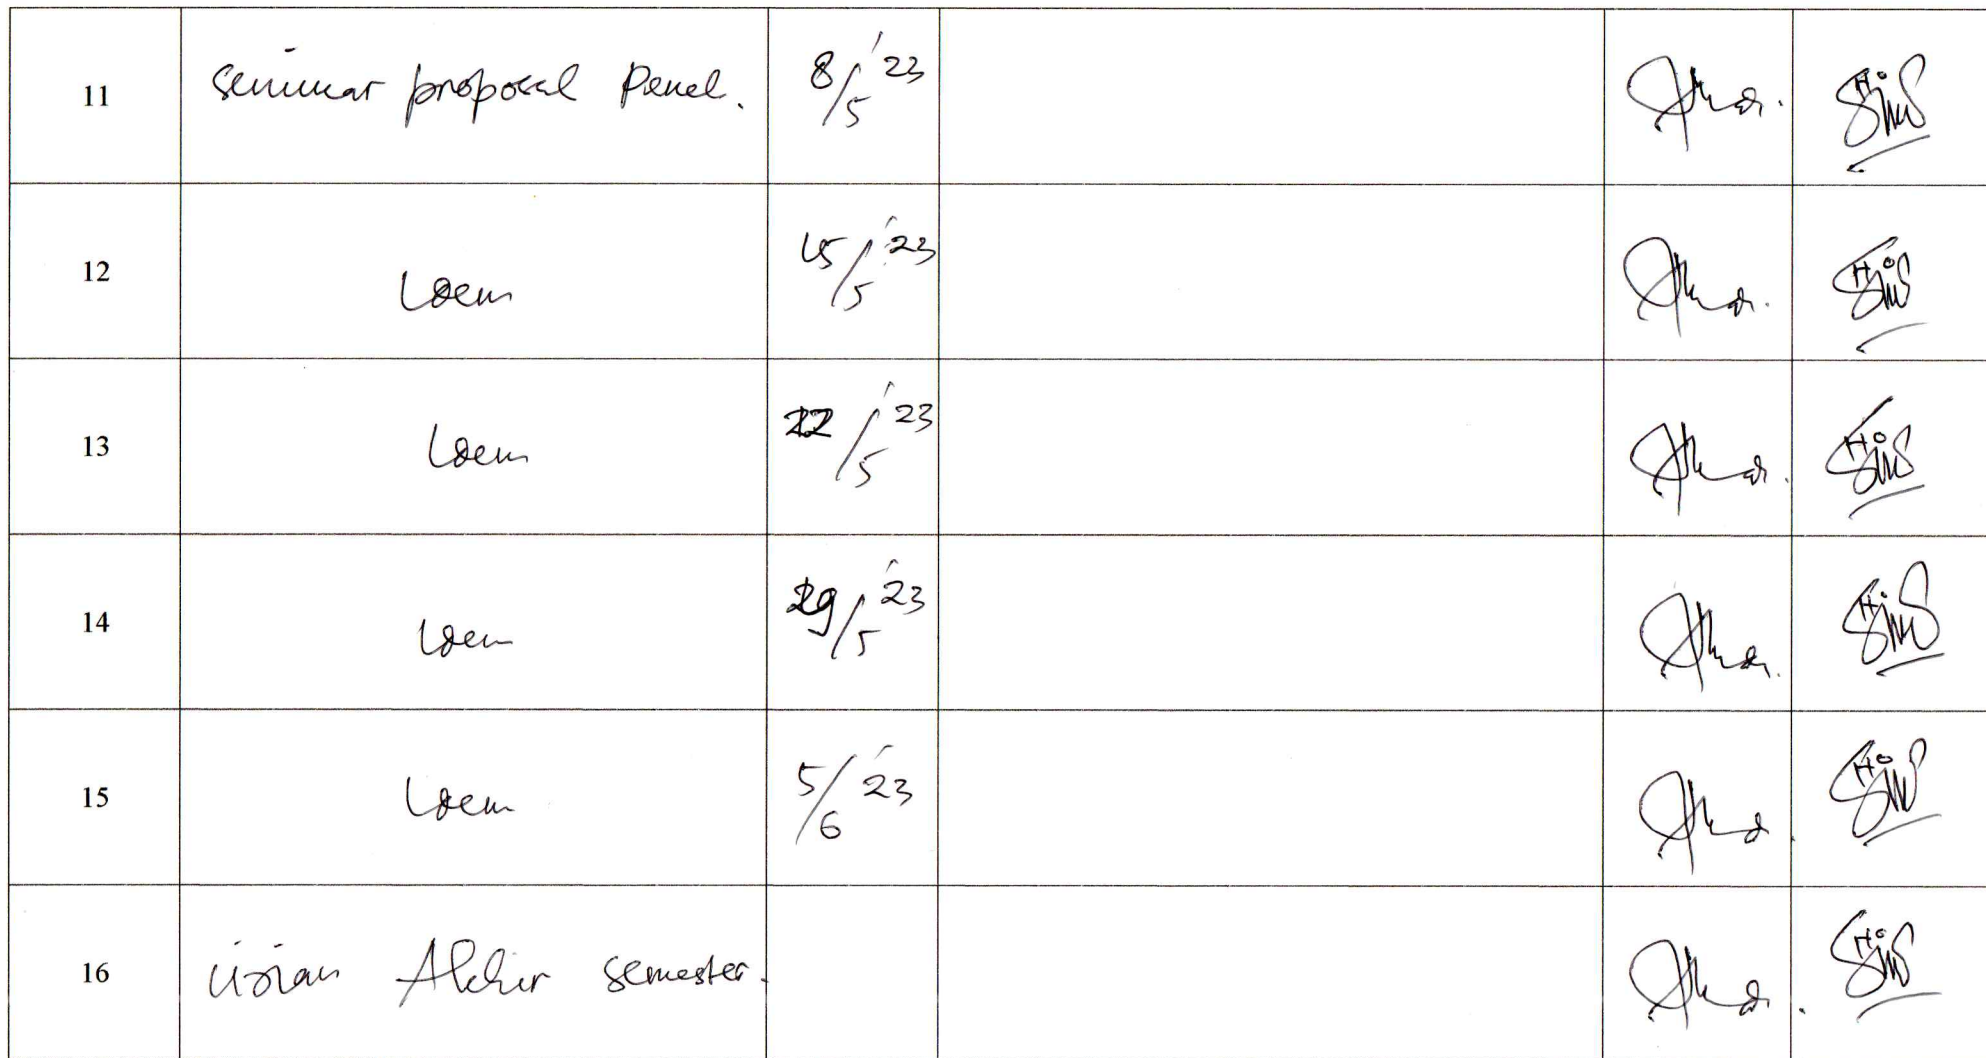 11 seminar proposal Penel. 8/5 '23
12 Idem 15/5 '23
13 Idem 22/5 '23
14 Idem 29/5 '23
15 Idem 5/6 '23
16 Ujian Akhir semester.